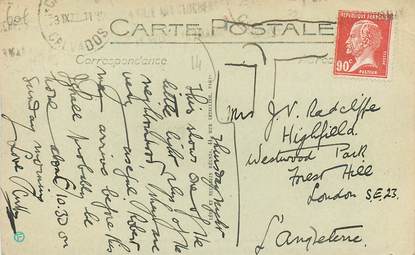 CALVADOS
CARTE POSTALE
Correspondance
RÉPUBLIQUE FRANÇAISE
90c
PASTEUR
14
Thursday night
This shows one of the
little light rlys of the
neighbourhood. They are
very useful. Robert
may arrive before this
I shall probably be
home about 10.30 on
Sunday morning
Love
Mrs J.V. Radcliffe
Highfield
Westwood Park
Forest Hill
London SE.23.
L'Angleterre.